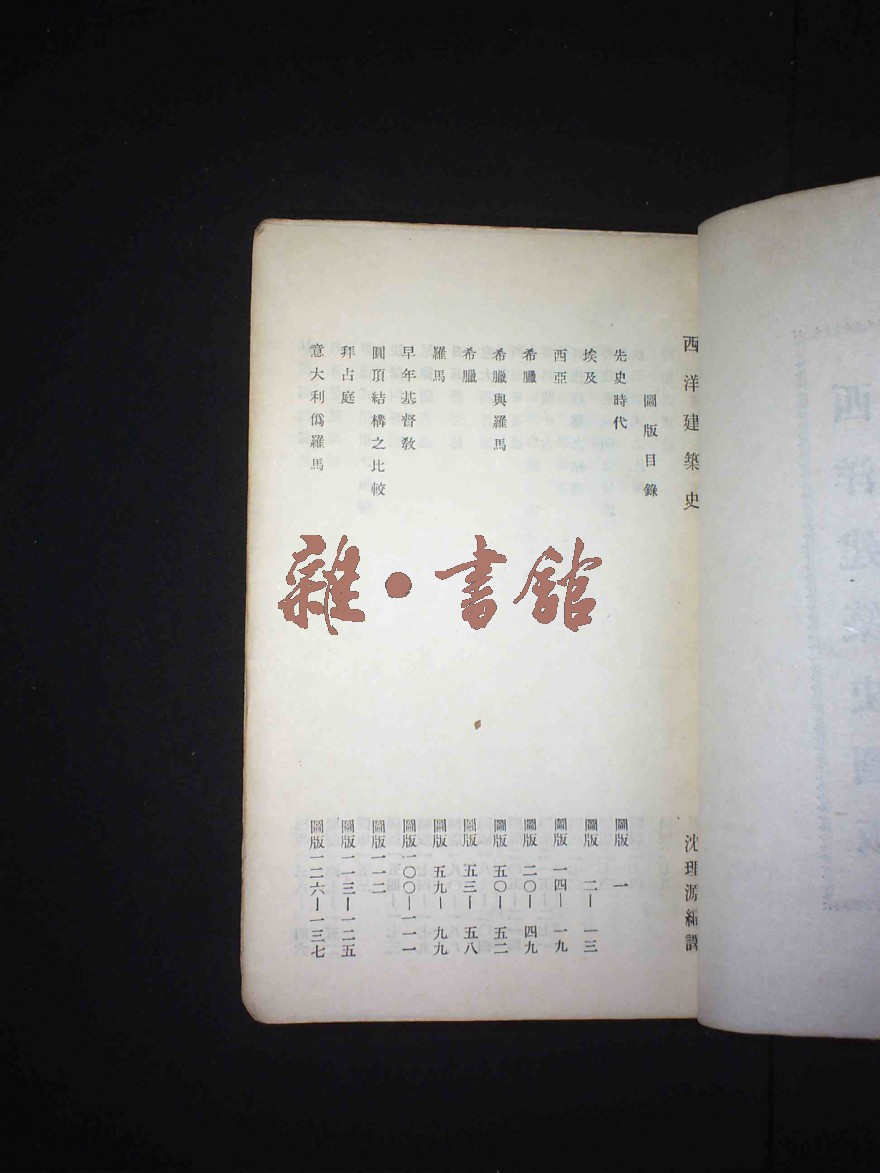 西洋建築史
沈理源編譯
圖版目錄
先史時代 圖版 一
埃及 圖版 二—一三
西亞 圖版 一四—一九
希臘 圖版 二〇—四九
希臘與羅馬 圖版 五〇—五二
希臘 圖版 五三—五八
羅馬 圖版 五九—九九
早年基督教 圖版 一〇〇—一一一
圓頂結構之比較 圖版 一一二
拜占庭 圖版 一一三—一二五
意大利僞羅馬 圖版 一二六—一三七
雜·書館